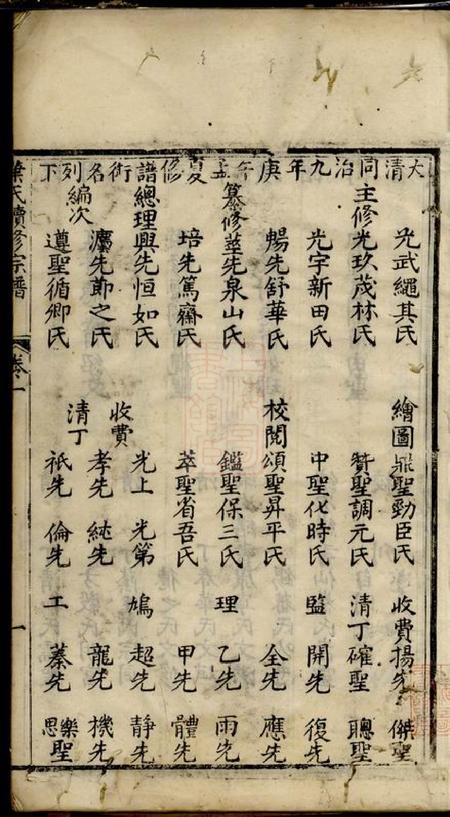 大清同治九年庚午孟夏修譜銜名列下
光武繩其氏 繪圖 鼎聖勁臣氏 收費 揚先 傑聖
主修 光玖茂林氏 贊聖調元氏 清丁 確聖 聰聖
光宇新田氏 中聖化時氏 監 開先 復先
暢先舒華氏 校閱 頌聖昇平氏 全先 應先
纂修 莖先泉山氏 鑑聖保三氏 理 乙先 雨先
培先篤齋氏 萃聖省吾氏 甲先 體先
總理 興先恒如氏 光上 光第 鳩 超先 靜先
編次 先節之氏 收費 孝先 純先 龍先 機先
遵聖循卿氏 清丁 祇先 倫先 工 蓁先 樂思聖
氏續修宗譜 卷一 一